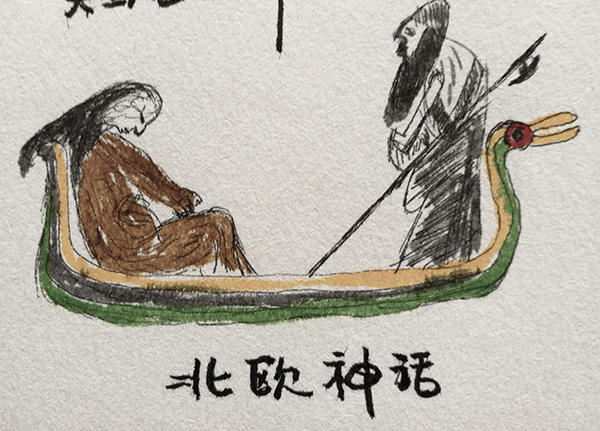 北欧神话